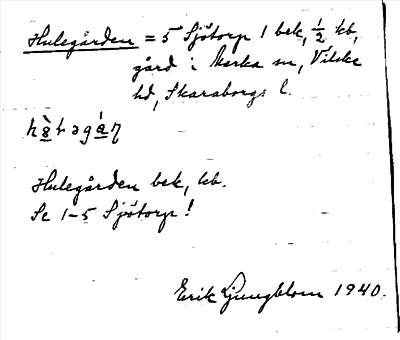 Hulegården = 5 Sjötorp 1 bek, ½ kb,
gård i Marka sn, Vilske
hd, Skaraborgs l.
Hulegården bek, kb.
Se 1-5 Sjötorp!
Erik Ljungblom 1940.